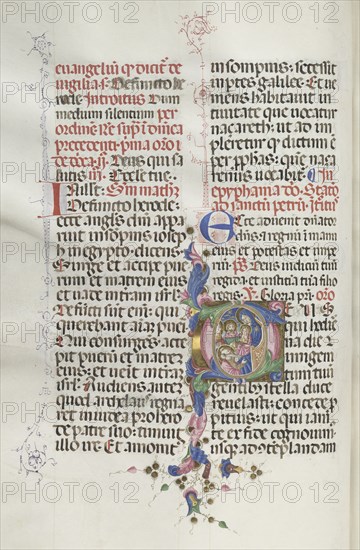 euangeliū q̄ dicit̃ de
uigilia s. Defuncto he
rode. Introitus Dum
medium silentium per
ordinē
precedenti. pma oro
Deus qui sa
lutis
In illo t̄. Scm mathz̃
Defuncto herode:
ecce angls dñi appa
ruit in sopnis iosep
h in egypto dicens.
Surge et accipe pue
rum et matrem eius
et uade in tram isrl.
Defūcti sunt eni qui
querebant aiam pue
ri. Qui consurgēs. acce
pit puerū et matrē
eius. et uenit in tram
isrl. Audiens autez
quod archelaus regna
ret in iudea pro herode
patre suo. timuit
illo ire. Et amonit
in sompnis. secessit
in ptes galilee. Et ue
niens habitauit in
ciuitate que uocatur
nazareth: ut ad im
pleretur q̄ dictum ē
per pphas: que naza
renus uocabit̃. In
epyphania dñi. Statō
ad sanctū petrū. Introit̃
Ecce aduenit dñator
dñs: et regnū in manu
eius et potestas et impe
rium. ps. Deus iudiciū tuū
regi da: et iustitiā tuā filio
regis. Gloria pri. oro
Deus qui hodie
rna die
unigeni
tum tuū
gentib; stella duce
reuelasti. concede p
pitius. ut qui iam
te ex fide cognouim
usq; ad cōteplandam